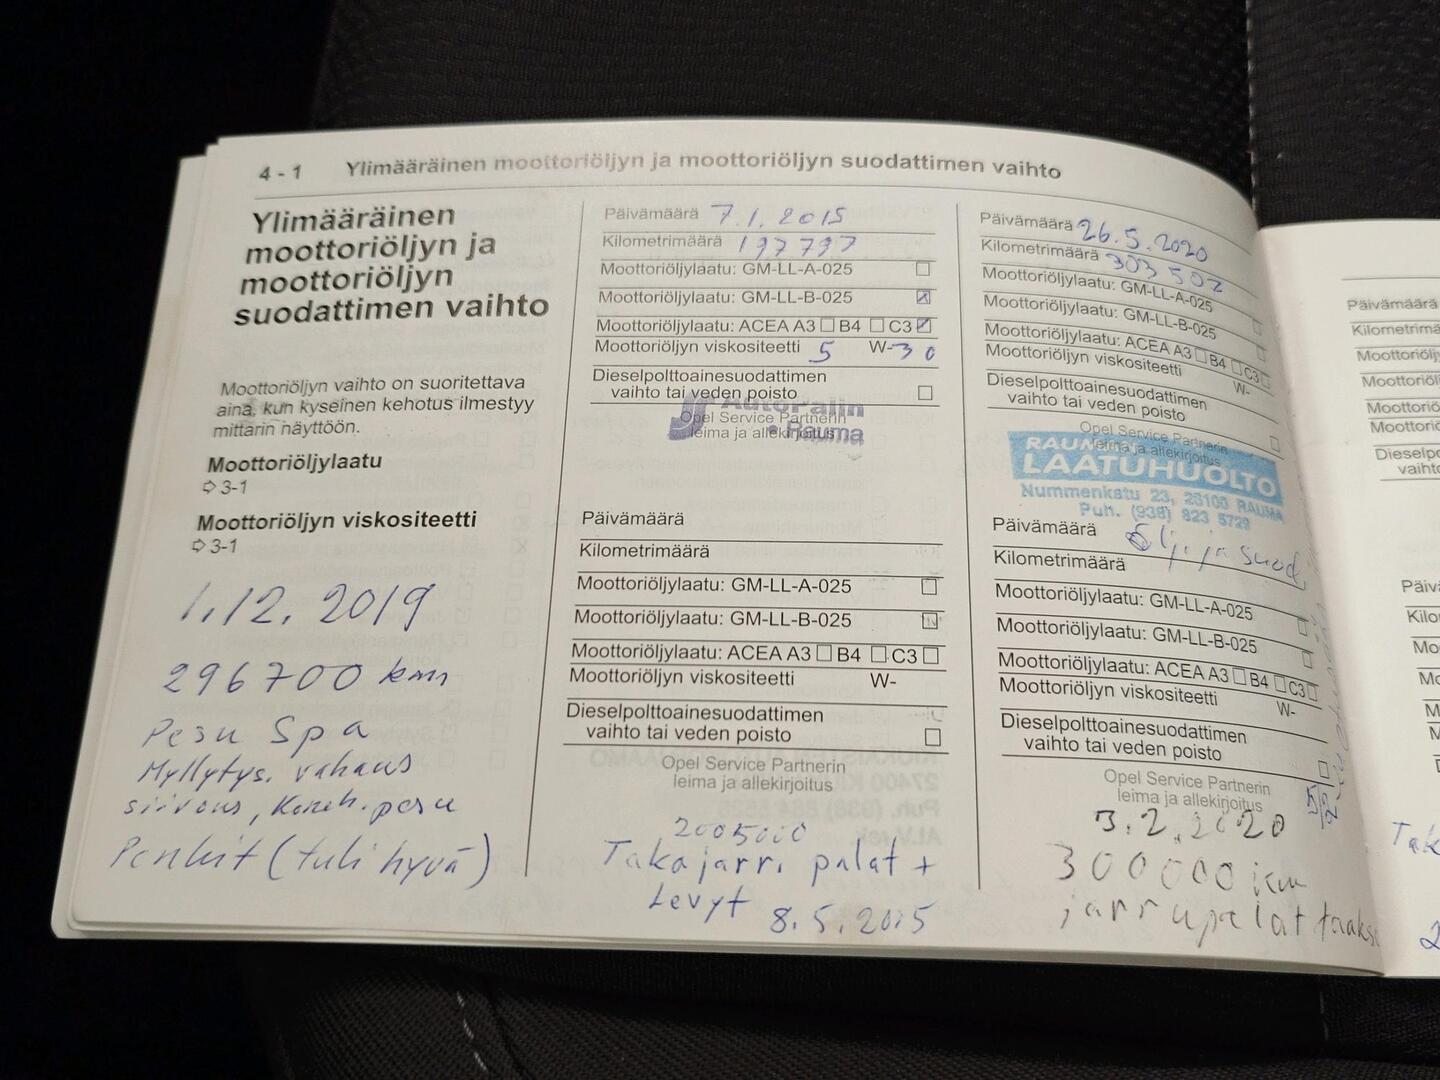 4 - 1 Ylimääräinen moottoriöljyn ja moottoriöljyn suodattimen vaihto
Ylimääräinen
moottoriöljyn ja
moottoriöljyn
suodattimen vaihto
Moottoriöljyn vaihto on suoritettava
aina, kun kyseinen kehotus ilmestyy
mittarin näyttöön.
Moottoriöljylaatu
⇨ 3-1
Moottoriöljyn viskositeetti
⇨ 3-1
1.12. 2019
296700 km
Pesu Spa
Myllytys. vahaus
siivous, Koneh. pesu
Penkit (tuli hyvä)
Päivämäärä 7.1.2015
Kilometrimäärä 197797
Moottoriöljylaatu: GM-LL-A-025
Moottoriöljylaatu: GM-LL-B-025
Moottoriöljylaatu: ACEA A3 B4 C3
Moottoriöljyn viskositeetti 5 W-30
Dieselpolttoainesuodattimen
vaihto tai veden poisto
AutoPalin
Opel Service Partnerin
Rauma
leima ja allekirjoitus
Päivämäärä
Kilometrimäärä
Moottoriöljylaatu: GM-LL-A-025
Moottoriöljylaatu: GM-LL-B-025
Moottoriöljylaatu: ACEA A3 B4 C3
Moottoriöljyn viskositeetti W-
Dieselpolttoainesuodattimen
vaihto tai veden poisto
Opel Service Partnerin
leima ja allekirjoitus
2005000
Takajarri palat +
Levyt 8.5.2015
Päivämäärä 26.5.2020
Kilometrimäärä 303 502
Moottoriöljylaatu: GM-LL-A-025
Moottoriöljylaatu: GM-LL-B-025
Moottoriöljylaatu: ACEA A3 B4 C3
Moottoriöljyn viskositeetti W-
Dieselpolttoainesuodattimen
vaihto tai veden poisto
Opel Service Partnerin
leima ja allekirjoitus
RAUMAN
LAATUHUOLTO
Nummenkatu 23, 26100 RAUMA
Puh. (938) 823 5729
Päivämäärä Öljy ja suod.
Kilometrimäärä
Moottoriöljylaatu: GM-LL-A-025
Moottoriöljylaatu: GM-LL-B-025
Moottoriöljylaatu: ACEA A3 B4 C3
Moottoriöljyn viskositeetti W-
Dieselpolttoainesuodattimen
vaihto tai veden poisto
Opel Service Partnerin
leima ja allekirjoitus
3.2.2020
300000 km
jarrupalat taakse
Päivämäärä